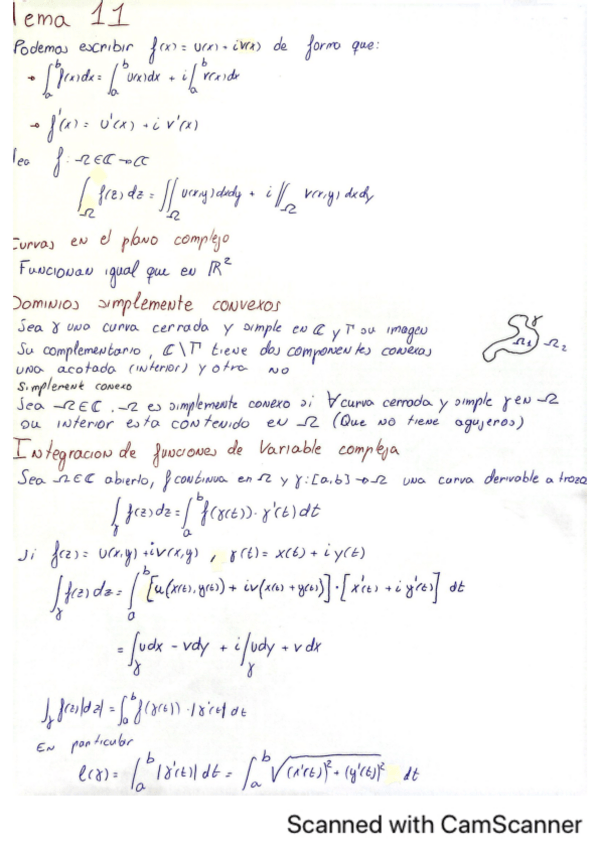 Tema 11
Podemos escribir f(x) = u(x) + iv(x) de forma que:
→ ∫_a^b f(x)dx = ∫_a^b u(x)dx + i∫_a^b v(x)dx
→ f'(x) = u'(x) + i v'(x)
Sea f: Ω∈ℂ→ℂ
∫_Ω f(z)dz = ∬_Ω u(x,y)dxdy + i∬_Ω v(x,y)dxdy
Curvas en el plano complejo
Funcionan igual que en ℝ²
Dominios simplemente convexos
Sea γ una curva cerrada y simple en ℂ y Γ su imagen
Su complementario, ℂ\Γ tiene dos componentes conexas
una acotada (interior) y otra no
γ Ω₁ Ω₂
Simplemente conexo
Sea Ω∈ℂ. Ω es simplemente conexo si ∀ curva cerrada y simple γ en Ω
su interior esta contenido en Ω (Que no tiene agujeros)
Integracion de funciones de Variable compleja
Sea Ω∈ℂ abierto, f continua en Ω y γ:[a,b]→Ω una curva derivable a trozos
∫_γ f(z)dz = ∫_a^b f(γ(t))·γ'(t)dt
Si f(z) = u(x,y) + iv(x,y), γ(t) = x(t) + iy(t)
∫_γ f(z)dz = ∫_a^b [u(x(t),y(t)) + iv(x(t)+y(t))]·[x'(t) + iy'(t)] dt
= ∫_γ udx - vdy + i∫_γ udy + vdx
∫_γ f(z)|dz| = ∫_a^b f(γ(t))·|γ'(t)| dt
En particular
ℓ(γ) = ∫_a^b |γ'(t)| dt = ∫_a^b √((x'(t))² + (y'(t))²) dt
Scanned with CamScanner